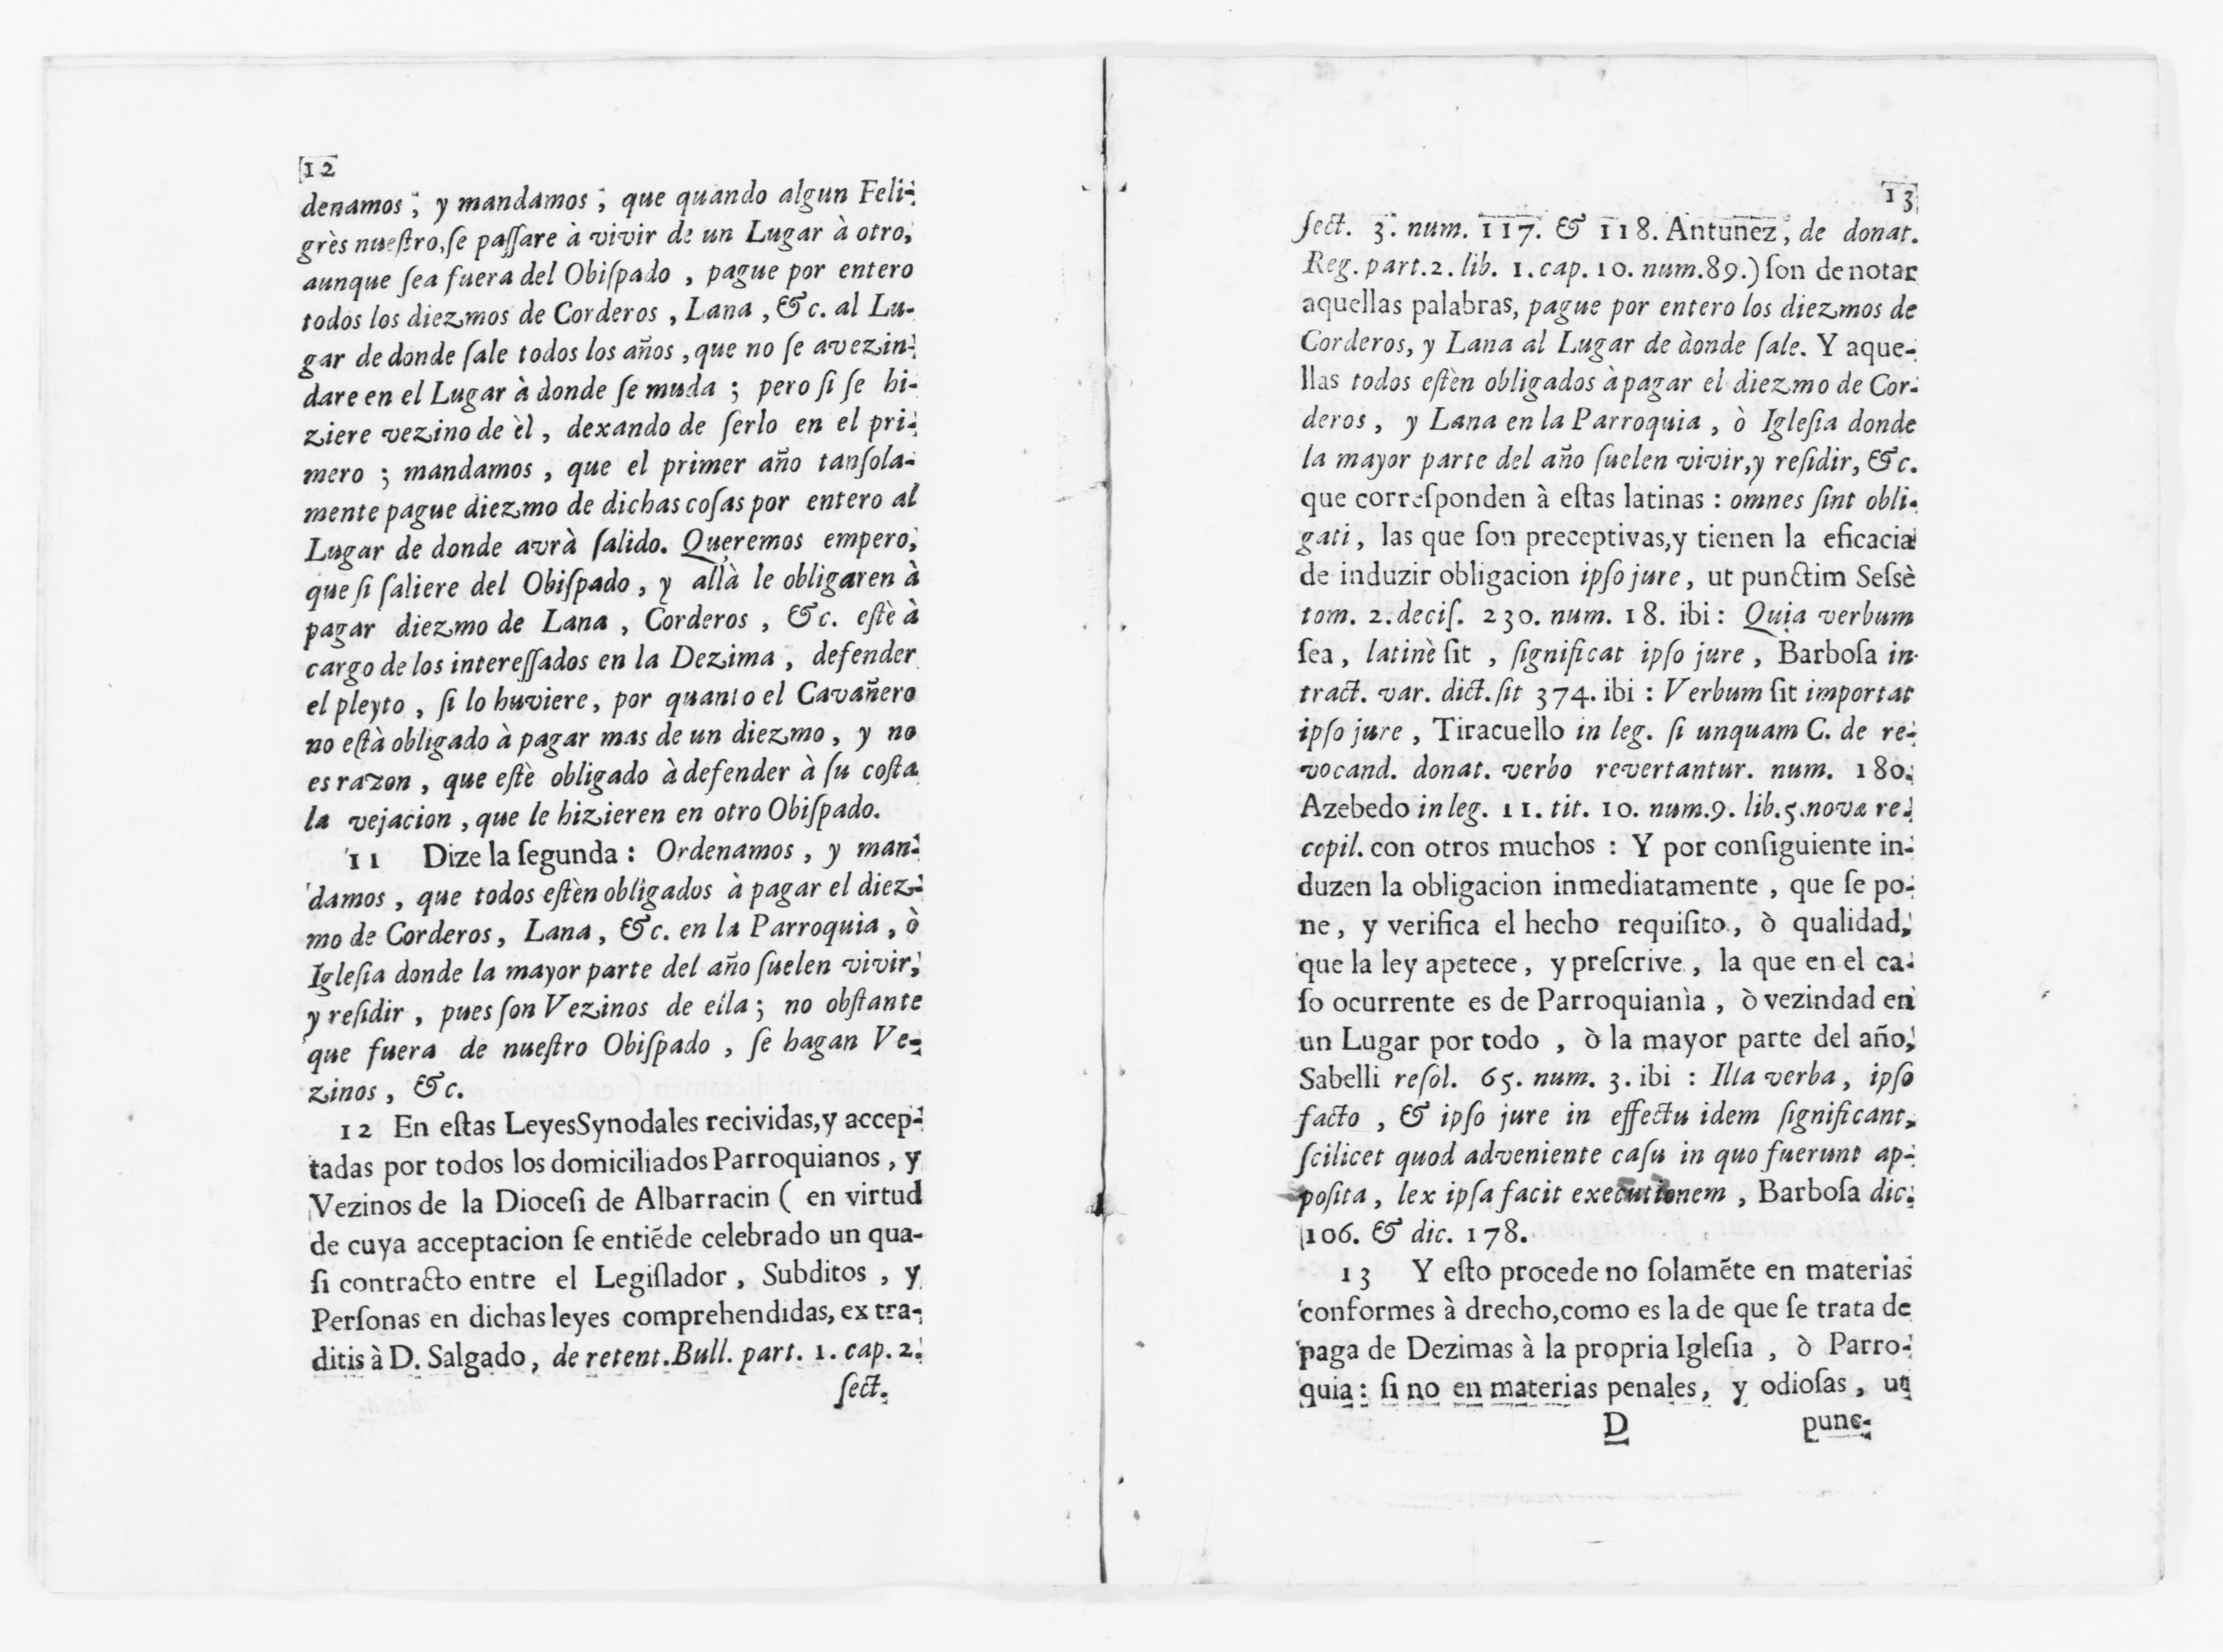 12
denamos, y mandamos, que quando algun Feli-
grès nueſtro, ſe paſſare à vivir de un Lugar à otro,
aunque ſea fuera del Obiſpado, pague por entero
todos los diezmos de Corderos, Lana, &c. al Lu-
gar de donde ſale todos los años, que no ſe avezin-
dare en el Lugar à donde ſe muda; pero ſi ſe hi-
ziere vezino de èl, dexando de ſerlo en el pri-
mero; mandamos, que el primer año tanſola-
mente pague diezmo de dichas coſas por entero al
Lugar de donde avrà ſalido. Queremos empero,
que ſi ſaliere del Obiſpado, y allà le obligaren à
pagar diezmo de Lana, Corderos, &c. eſtè à
cargo de los intereſſados en la Dezima, defender
el pleyto, ſi lo huviere, por quanto el Cavañero
no eſtà obligado à pagar mas de un diezmo, y no
es razon, que eſtè obligado à defender à ſu coſta
la vejacion, que le hizieren en otro Obiſpado.
11 Dize la ſegunda: Ordenamos, y man-
damos, que todos eſtèn obligados à pagar el diez-
mo de Corderos, Lana, &c. en la Parroquia, ò
Igleſia donde la mayor parte del año ſuelen vivir,
y reſidir, pues ſon Vezinos de ella; no obſtante
que fuera de nueſtro Obiſpado, ſe hagan Ve-
zinos, &c.
12 En eſtas Leyes Synodales recividas, y accep-
tadas por todos los domiciliados Parroquianos, y
Vezinos de la Dioceſi de Albarracin ( en virtud
de cuya acceptacion ſe entiẽde celebrado un qua-
ſi contracto entre el Legiſlador, Subditos, y
Perſonas en dichas leyes comprehendidas, ex tra-
ditis à D. Salgado, de retent. Bull. part. 1. cap. 2.
ſect.
13
ſect. 3. num. 117. & 118. Antunez, de donat.
Reg. part. 2. lib. 1. cap. 10. num. 89.) ſon de notar
aquellas palabras, pague por entero los diezmos de
Corderos, y Lana al Lugar de dònde ſale. Y aque-
llas todos eſtèn obligados à pagar el diezmo de Cor-
deros, y Lana en la Parroquia, ò Igleſia donde
la mayor parte del año ſuelen vivir, y reſidir, &c.
que correſponden à eſtas latinas: omnes ſint obli-
gati, las que ſon preceptivas, y tienen la eficacia
de induzir obligacion ipſo jure, ut punctim Seſsè
tom. 2. deciſ. 230. num. 18. ibi: Quia verbum
ſea, latinè ſit, ſignificat ipſo jure, Barboſa in
tract. var. dict. ſit 374. ibi: Verbum ſit importat
ipſo jure, Tiracuello in leg. ſi unquam C. de re-
vocand. donat. verbo revertantur. num. 180.
Azebedo in leg. 11. tit. 10. num. 9. lib. 5. novæ re-
copil. con otros muchos: Y por conſiguiente in-
duzen la obligacion inmediatamente, que ſe po-
ne, y verifica el hecho requiſito, ò qualidad,
que la ley apetece, y preſcrive, la que en el ca-
ſo ocurrente es de Parroquianìa, ò vezindad en
un Lugar por todo, ò la mayor parte del año,
Sabelli reſol. 65. num. 3. ibi: Illa verba, ipſo
facto, & ipſo jure in effectu idem ſignificant,
ſcilicet quod adveniente caſu in quo fuerunt ap-
poſita, lex ipſa facit executionem, Barboſa dic.
106. & dic. 178.
13 Y eſto procede no ſolamẽte en materias
conformes à drecho, como es la de que ſe trata de
paga de Dezimas à la propria Igleſia, ò Parro-
quia: ſi no en materias penales, y odioſas, ut
D punc-